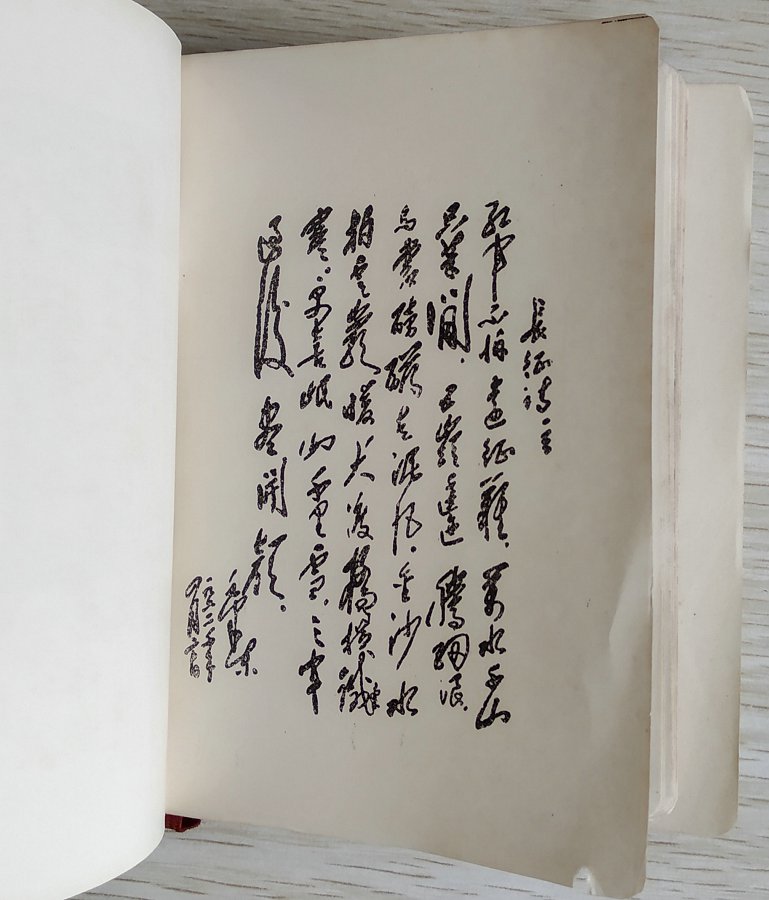 長征詩一首
紅軍不怕遠征難，萬水千山
只等閒。五嶺逶迤騰細浪，
烏蒙磅礴走泥丸。金沙水
拍雲崖暖，大渡橋橫鐵索
寒。更喜岷山千里雪，三軍
過後盡開顏。
毛澤東
一九六二年
四月